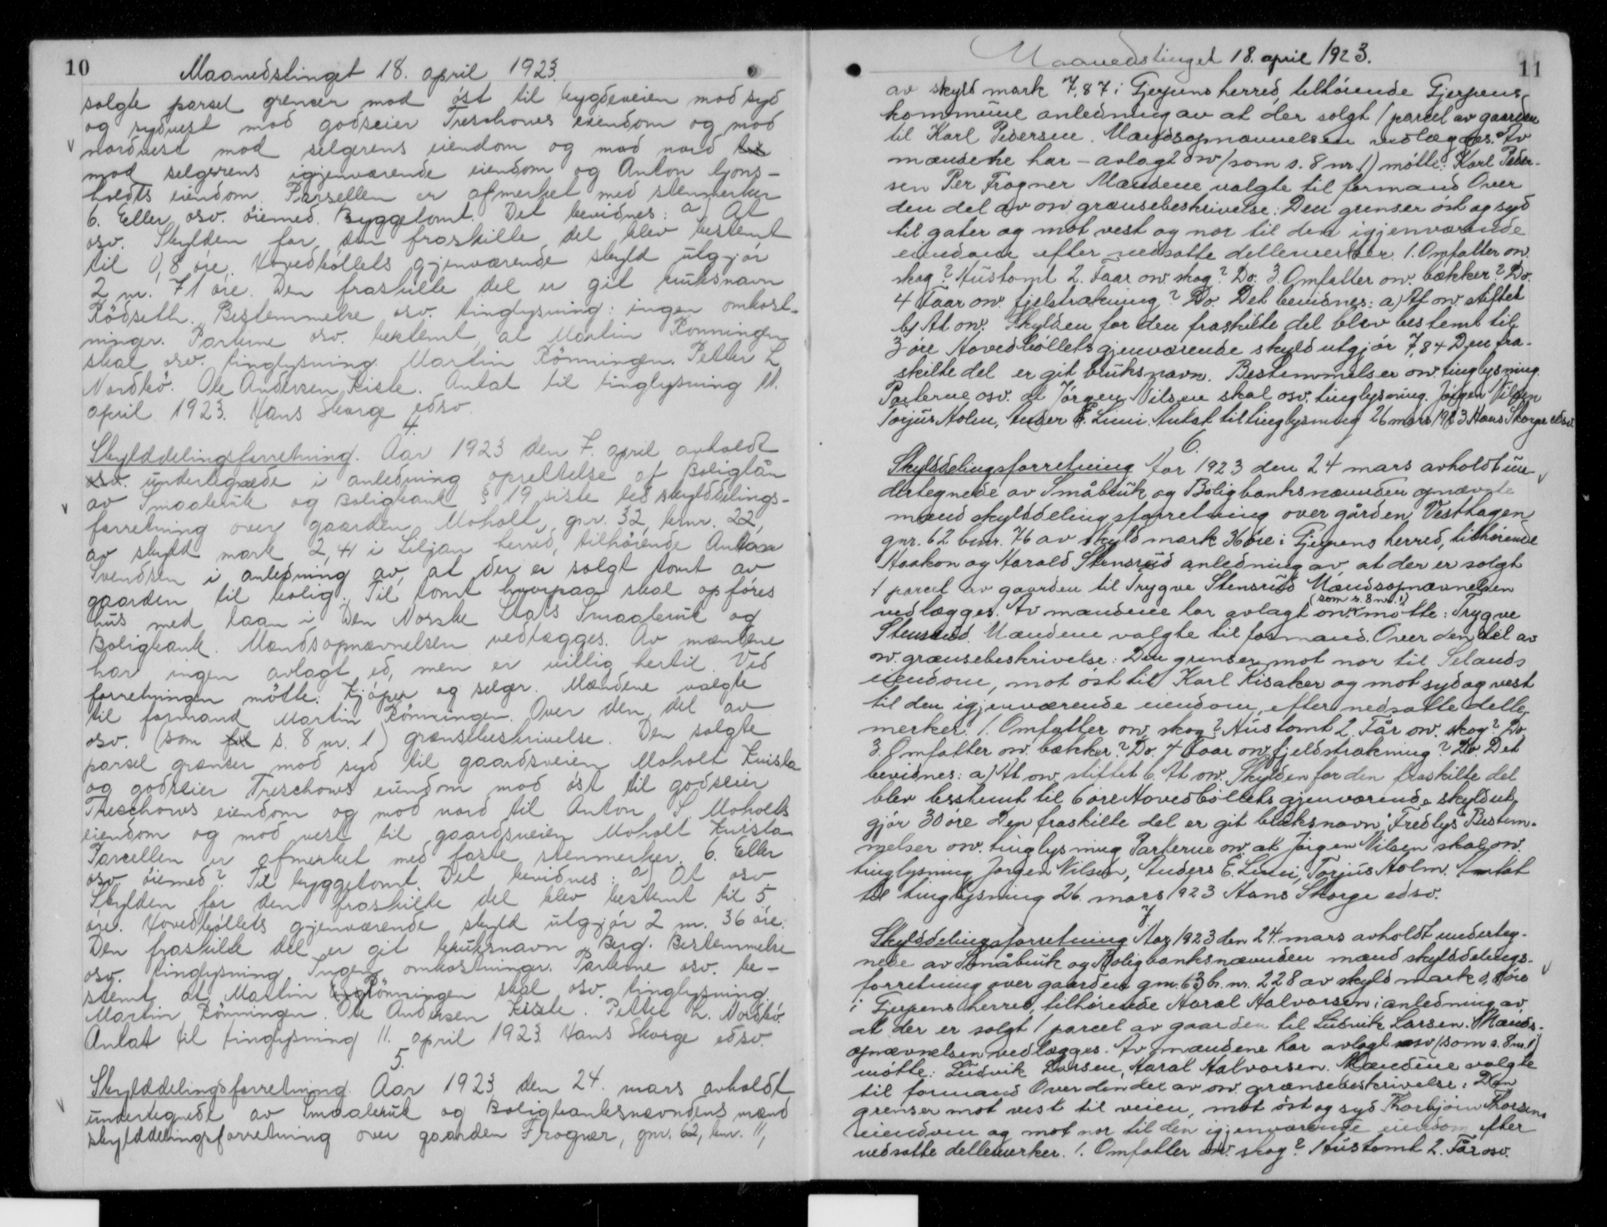 10
Maanedstinget 18. april 1923.
solgte parsel grenser mod øst til bygdeveien mod syd
og sydvest mod godseier Treschows eiendom og mod
nordvest mod selgerens eiendom og mod nord
mod selgerens igjenværende eiendom og Anton Gons-
holdts eiendom. Parsellen er afmerket med stenmerker
6. Eller osv. øiemed. Byggetomt. Det bevidnes: a) At
osv. Skylden for den fraskilte del blev bestemt
til 0,8 øre. Hovedbøllets gjenværende skyld utgjör
2 m. 71 øre. Den fraskilte del er git bruksnavn
Rödseth. Bestemmelse osv. tinglysning: ingen omkost-
ninger. Parterne osv. bestemt, at Martin Rönningen
skal osv. tinglysning. Martin Rönningen. Petter L.
Nordbö. Ole Andersen Kiste. Antat til tinglysning 11.
april 1923. Hans Skorge edsv.
4
Skylddelingsforretning. Aar 1923 den 7. april avholdt
osv. undertegnede i anledning oprettelse af Boliglån
av Smaabruk og Boligbank § 19 siste led skylddelings-
forretning over gaarden Moholt, gnr. 32, bnr. 22,
av skyld mark 2,41 i Siljan herred, tilhörende Anton
Svendsen i anledning av, at der er solgt tomt av
gaarden til bolig. Til tomt hvorpaa skal opföres
hus med laan i Den Norske Stats Smaabruk og
Boligbank. Mandsopnævnelsen vedlægges. Av mændene
har ingen avlagt ed, men er villig hertil. Ved
forretningen mötte: Kjöper og selger. Mændene valgte
til formand Martin Rönningen. Over den del av
osv. (som s. 8 nr. 1) grænsebeskrivelse. Den solgte
parsel grænser mod syd til gaardsveien Moholt Kvista
og godseier Treschows eiendom mod øst til godseier
Treschows eiendom og mod nord til Anton S. Moholts
eiendom og mod vest til gaardsveien Moholt Kvista
Parcellen er afmerket med faste stenmerker. 6. Eller
osv øiemed? Til byggetomt. Det bevidnes: a) At osv
Skylden for den fraskilte del blev bestemt til 5
øre. Hovedbøllets gjenværende skyld utgjör 2 m. 36 øre.
Den fraskilte del er git bruksnavn Berg. Bestemmelse
osv. tinglysning. Ingen omkostninger. Parterne osv. be-
stemt, at Martin Rönningen skal osv. tinglysning.
Martin Rönningen. Ole Andersen Kiste. Petter L. Nordbö.
Antat til tinglysning 11. april 1923. Hans Skorge edsv.
5.
Skylddelingsforretning. Aar 1923 den 24. mars avholdt
undertegnede av Smaabruk og Boligbanksnævndens mænd
skylddelingsforretning over gaarden Frogner, gnr. 62, bnr. 11,
Maanedstinget 18. april 1923.
11
av skyld mark 7,87 i Gjerpens herred, tilhörende Gjerpens
kommune anledning av at der solgt 1 parcel av gaarden
til Karl Pedersen. Mandsopnævnelsen vedlægges. Av
mændene har – avlagt osv (som s. 8 nr. 1) mötte: Karl Peder-
sen Per Frogner Mændene valgte til formand Over
den del av osv grænsebeskrivelse: Den grenser öst og syd
til gater og mot vest og nor til den igjenværende
eiendom efter nedsatte dellemerker. 1. Omfatter osv.
skog? Hustomt 2. Faar osv skog? Do. 3 Omfatter osv. bækker? Do.
4 Faar osv fjelstrækning? Do. Det bevidnes: a) At osv stiftet
b) At osv. Skylden for den fraskilte del blev bestemt til
3 öre Hovedböllets gjenværende skyld utgjör 7,84 Den fra-
skilte del er git bruksnavn. Bestemmelser osv. tinglysning.
Parterne osv. at Jörgen Nilsen skal osv. tinglysning. Jörgen Nilsen
Torjus Holm, Anders E. Limi. Antat til tinglysning 26 mars 1923 Hans Skorge edsv.
6.
Skylddelingsforretning Aar 1923 den 24 mars avholdt un-
dertegnede av Småbruk og Boligbanksnævnden opnævnte
mænd skylddelingsforretning over gården Vesthagen
gnr. 62 bnr. 76 av skyld mark 36 öre i Gjerpens herred, tilhörende
Haakon og Harald Stensrud anledning av at der er solgt
1 parcel av gaarden til Trygve Stensrud Mandsopnævnelsen
vedlægges. Av mændene har avlagt osv. (som s. 8 nr. 1) mötte: Trygve
Stensrud. Mændene valgte til formand. Over den del av
osv. grænsebeskrivelse: Den grenser mot nor til Selands
eiendom, mot öst til Karl Kisaker og mot syd og vest
til den igjenværende eiendom, efter nedsatte delle
merker. 1. Omfatter osv. skog? Hustomt 2. Får osv. skog? Do.
3. Omfatter osv. bækker? Do. 4 Faar osv fjeldstrækning? Do Det
bevidnes: a) At osv. stiftet b. At osv. Skylden for den fraskilte del
blev besstemt til 6 öre Hovedböllets gjenværende skyld ut-
gjör 30 öre Den fraskilte del er git bruksnavn "Fredlys" Bestem-
melser osv. tinglysning Parterne osv. at Jörgen Nilsen skal osv.
tinglysning Jörgen Nilsen, Anders E. Limi, Torjus Holm. Antat
til tinglysning 26. mars 1923 Hans Skorge edsv.
7
Skylddelingsforretning Aar 1923 den 24. mars avholdt underteg-
nede av Småbruk og Boligbanksnævnden mænd skylddelings-
forretning over gaarden gnr. 63 b. nr. 228 av skyld mark 0, öre
i Gjerpens herred, tilhörende Haral Halvorsen i anledning av
at der er solgt 1 parcel av gaarden til Ludvik Larsen. Mands-
opnævnelsen vedlægges. Av mændene har avlagt osv (som s. 8 nr. 1)
mötte: Ludvik Larsen, Haral Halvorsen. Mændene valgte
til formand Over den del av osv. grænsebeskrivelse: Den
grenser mot vest til veien, mot öst og syd Thorbjörn Thorsens
eiendom og mot nor til den igjenværende eiendom efter
nedsatte dellemerker. 1. Omfatter osv. skog? Hustomt 2. Får osv.